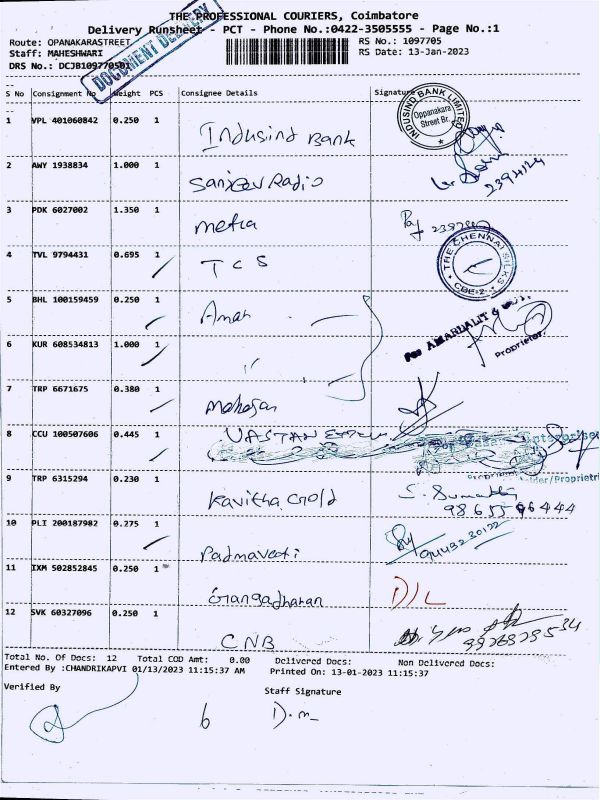 THE PROFESSIONAL COURIERS, Coimbatore
Delivery Runsheet - PCT - Phone No.:0422-3505555 - Page No.:1
Route: OPANAKARASTREET
RS No.: 1097705
Staff: MAHESHWARI
RS Date: 13-Jan-2023
DRS No.: DCJB109770501
DOCUMENT DELIVERY
S No Consignment No Weight PCS Consignee Details Signature
INDUSIND BANK LIMITED
Oppanakara
Street Br.
1 VPL 401060842 0.250 1 Indusind Bank
2 AWY 1938834 1.000 1 Sanjeev Radio
2394124
3 PDK 6027002 1.350 1 metra
4 TVL 9794431 0.695 1 TCS
THE CHENNAI SILKS
CBE-2
5 BHL 100159459 0.250 1 Aman
For AMARDALIT &
Proprietor
6 KUR 608534813 1.000 1 ''
7 TRP 6671675 0.380 1
8 CCU 100507606 0.445 1 VASTAN
Enterprises
9 TRP 6315294 0.230 1 Kavitha Gold
S. Sumathi
10 PLI 200187982 0.275 1 Padmavati
11 IXM 502852845 0.250 1 Gangadharan D/L
12 SVK 60327096 0.250 1 CNB
Total No. Of Docs: 12 Total COD Amt: 0.00 Delivered Docs: Non Delivered Docs:
Entered By :CHANDRIKAPVI 01/13/2023 11:15:37 AM Printed On: 13-01-2023 11:15:37
Verified By
Staff Signature
6 D.m